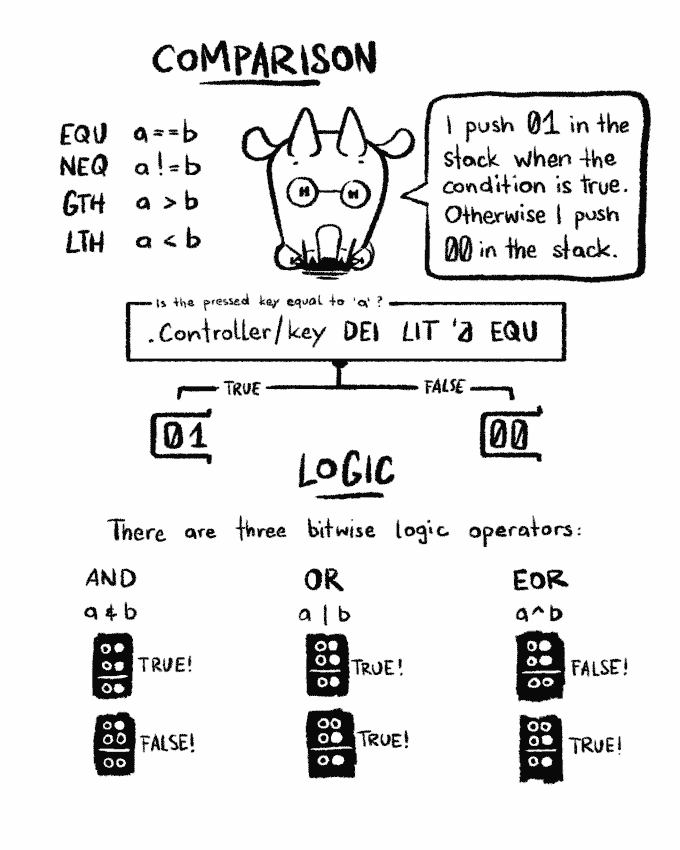 COMPARISON
EQU a==b
NEQ a!=b
GTH a > b
LTH a < b
I push 01 in the
stack when the
condition is true.
Otherwise I push
00 in the stack.
Is the pressed key equal to 'a'?
.Controller/key DEI LIT 'a EQU
TRUE FALSE
01 00
LOGIC
There are three bitwise logic operators:
AND OR EOR
a & b a | b a^b
TRUE! TRUE! FALSE!
FALSE! TRUE! TRUE!